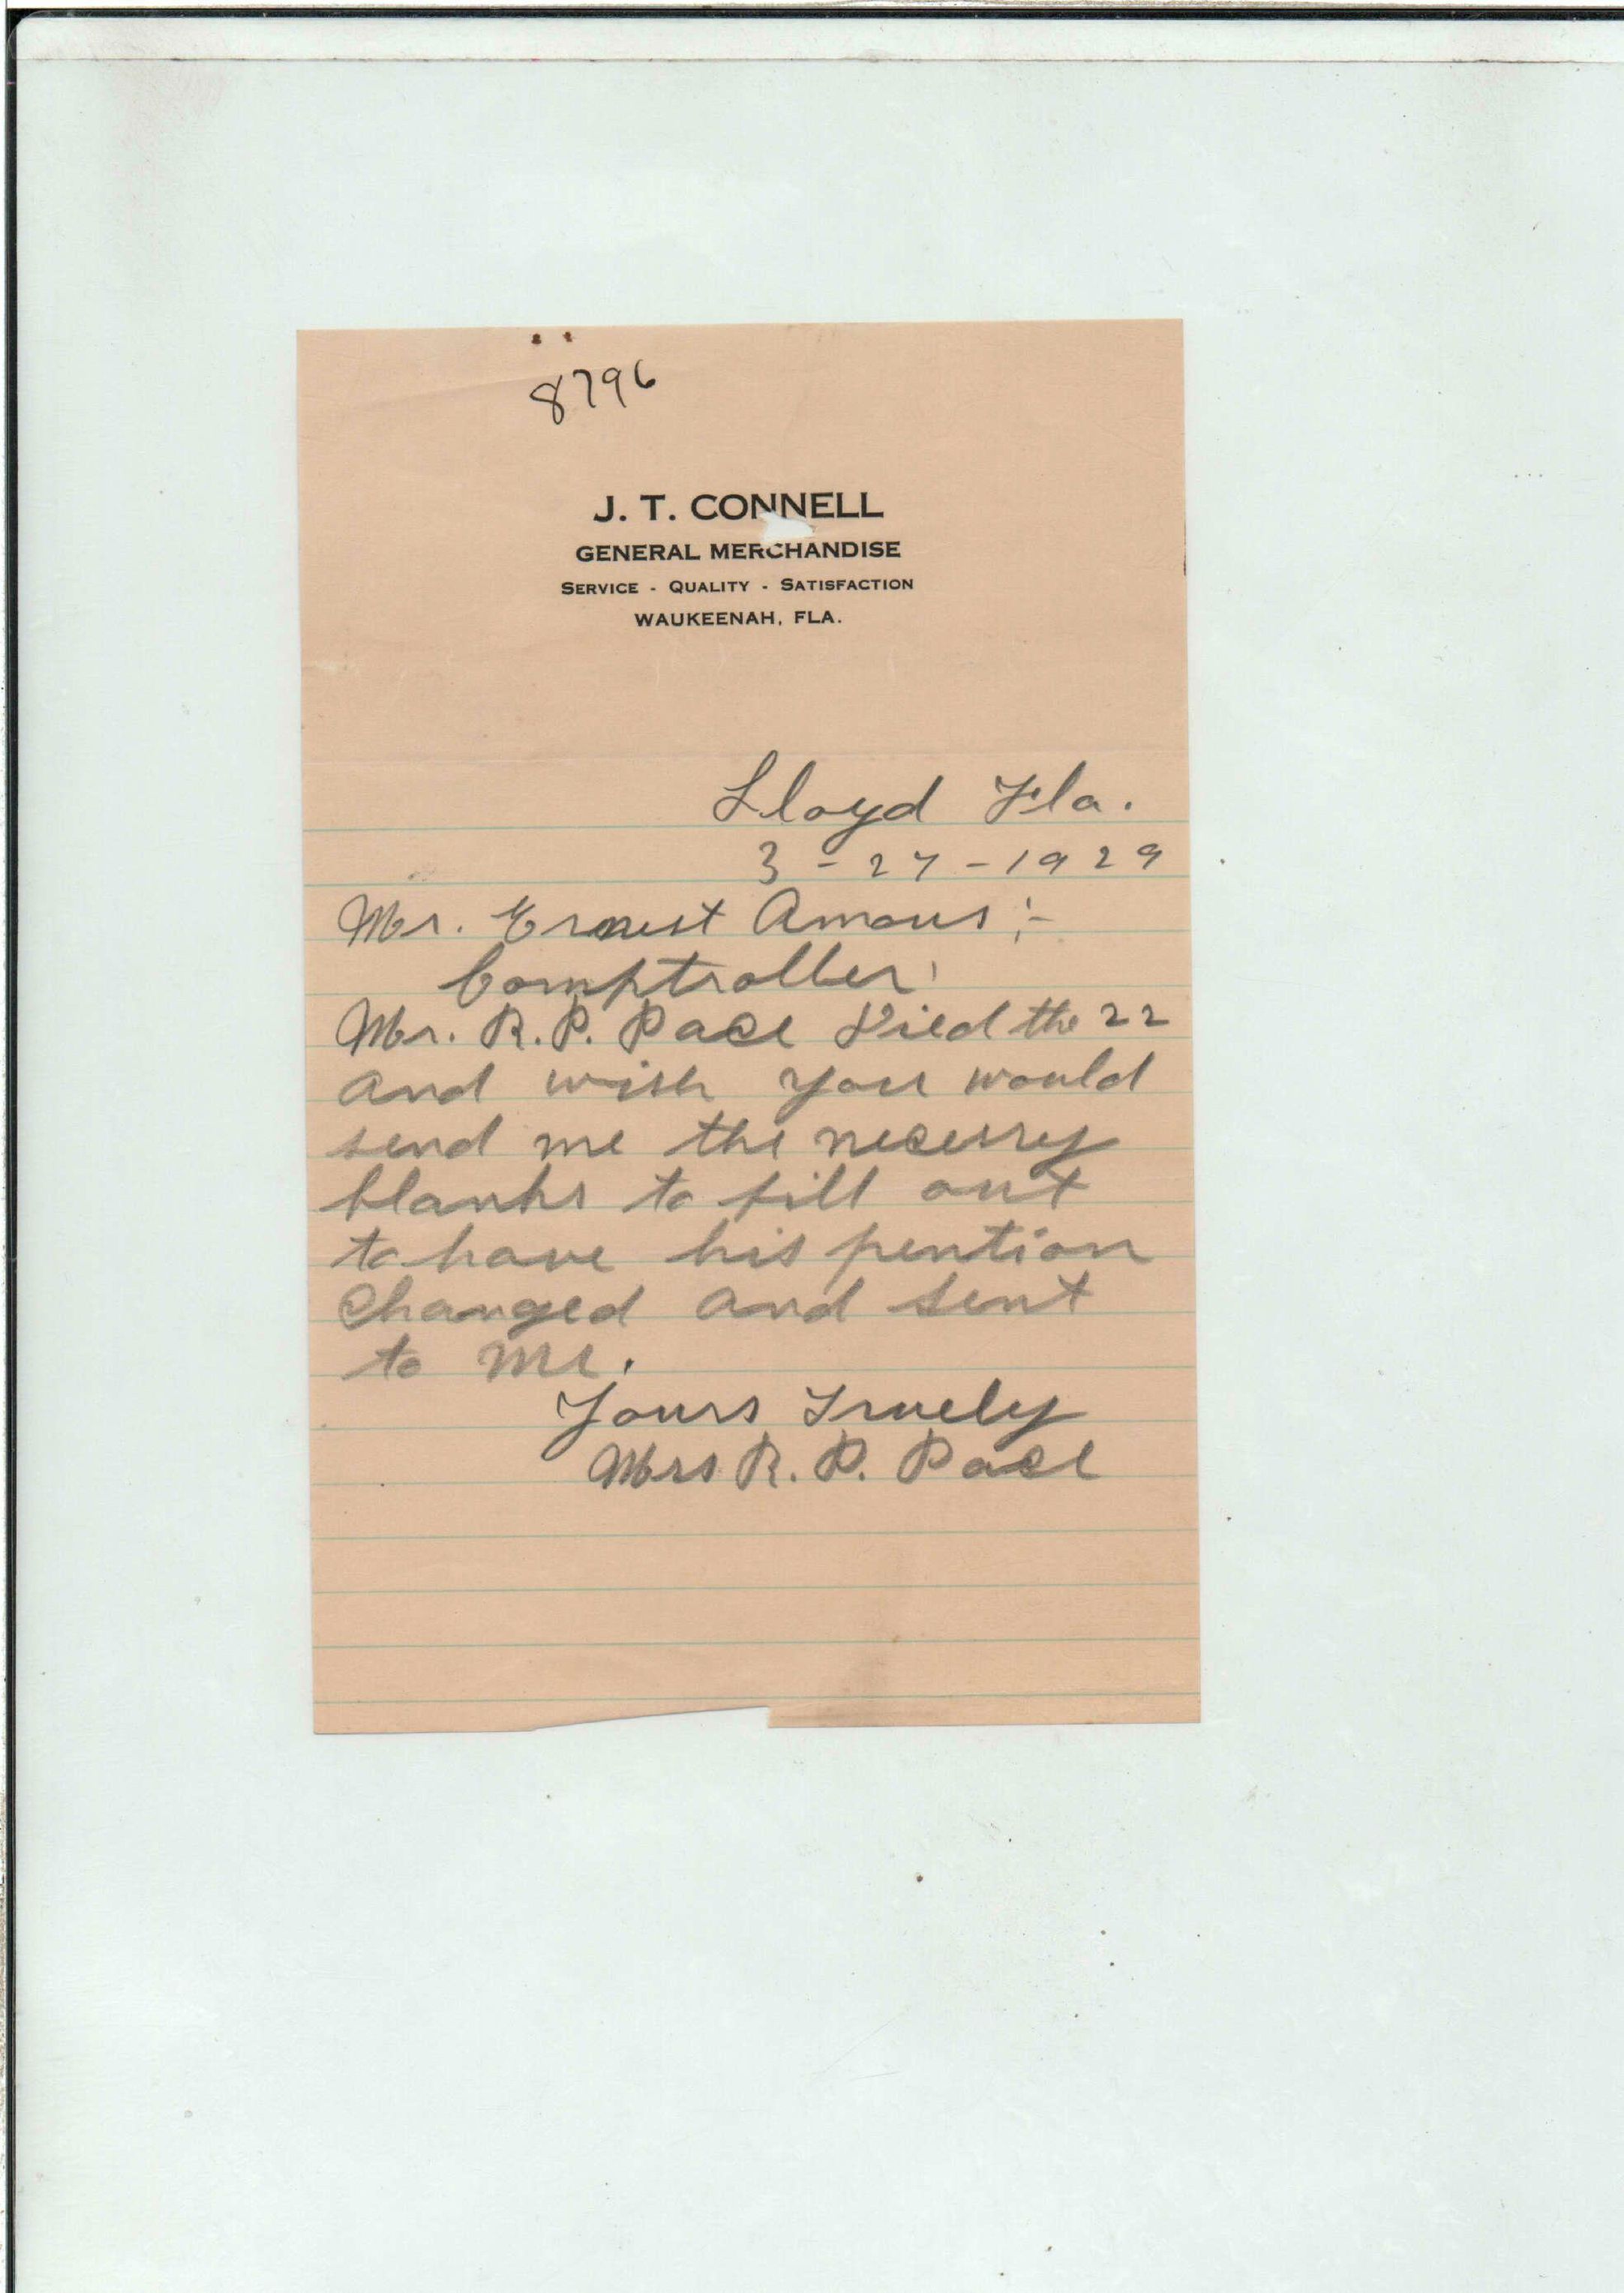 8796
J. T. CONNELL
GENERAL MERCHANDISE
SERVICE - QUALITY - SATISFACTION
WAUKEENAH, FLA.
Lloyd Fla.
3 - 27 - 1929
Mr. Ernest Amous :-
Comptroller:
Mr. R. P. Pace Died the 22
and wish you would
send me the necessry
blanks to fill out
to have his pention
Changed and sent
to me.
Yours Truely
Mrs R. P. Pace